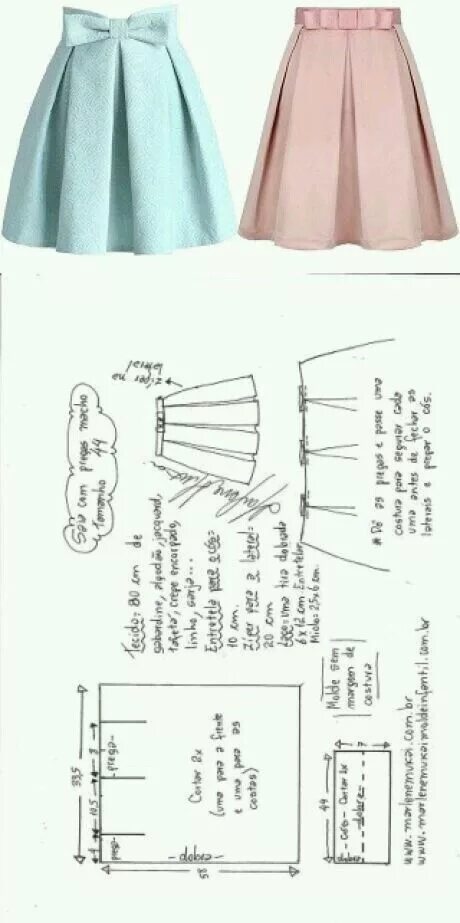 Saia com pregas macho
Tamanho 44
ziper na
lateral
Tecido: 80 cm de
gabardine, algodão, jacquard,
tafetá, crepe encorpado,
linho, sarja...
Entretela para o cós=
10 cm.
Ziper para a lateral=
20 cm
Laço= uma tira dobrada
6 x 12 cm Entretelar
Miolo= 2,5x6 cm.
# Dê as pregas e passe uma
costura para segurar cada
uma antes de fechar as
laterais e pregar o cós.
33,5
4
10,5
8
prega
-prega-
Cortar 2x
(uma para a frente
e uma para as
costas)
- dobra -
58
Molde sem
margem de
costura
44
- Cós - Cortar 2x
dobra
7
www.marlenemukai.com.br
www.marlenemukaimoldeinfantil.com.br